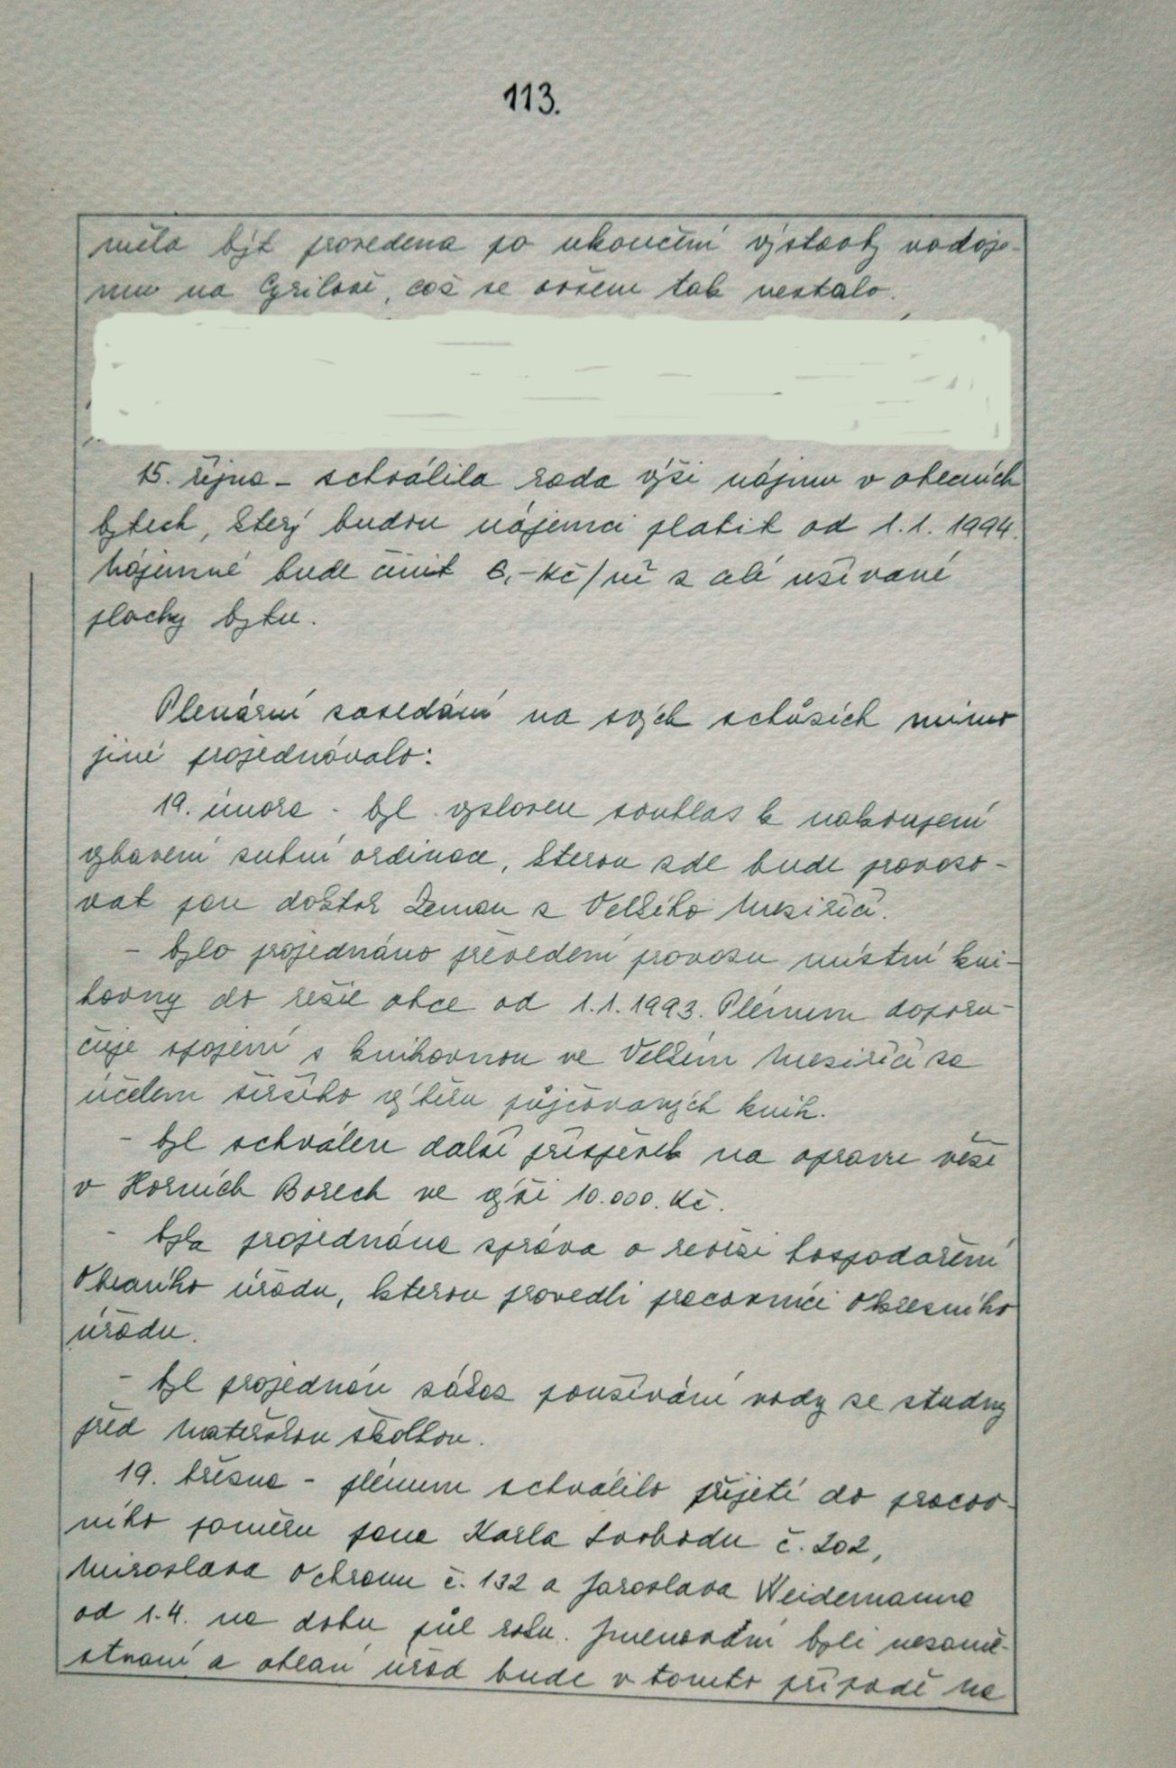 113.
měla být provedena po ukončení výstavby vodoje-
mu na Cyrilově, což se ovšem tak nestalo.
15. října - schválila rada výši nájmu v obecních
bytech, který budou nájemci platit od 1.1. 1994.
Nájemné bude činit 6,- Kč/m² z celé užívané
plochy bytu.
Plenární zasedání na svých schůzích mimo
jiné projednávalo:
19. února - byl vysloven souhlas k nakoupení
vybavení zubní ordinace, kterou zde bude provozo-
vat pan doktor Zeman z Velkého Meziříčí.
- bylo projednáno převedení provozu místní kni-
hovny do režie obce od 1.1.1993. Plénum doporu-
čuje spojení s knihovnou ve Velkém Meziříčí za
účelem širšího výběru půjčovaných knih.
- byl schválen další příspěvek na opravu věže
v Horních Borech ve výši 10.000. Kč.
- byla projednána zpráva o revizi hospodaření
Obecního úřadu, kterou provedli pracovníci Okresního
úřadu.
- byl projednán zákaz používání vody ze studny
před Mateřskou školkou.
19. března - plénum schválilo přijetí do pracov-
ního poměru pana Karla Svobodu č. 202,
Miroslava Ochranu č. 132 a Jaroslava Weidemanna
od 1.4. na dobu půl roku. Jmenovaní byli nezamě-
stnaní a obecní úřad bude v tomto případě na